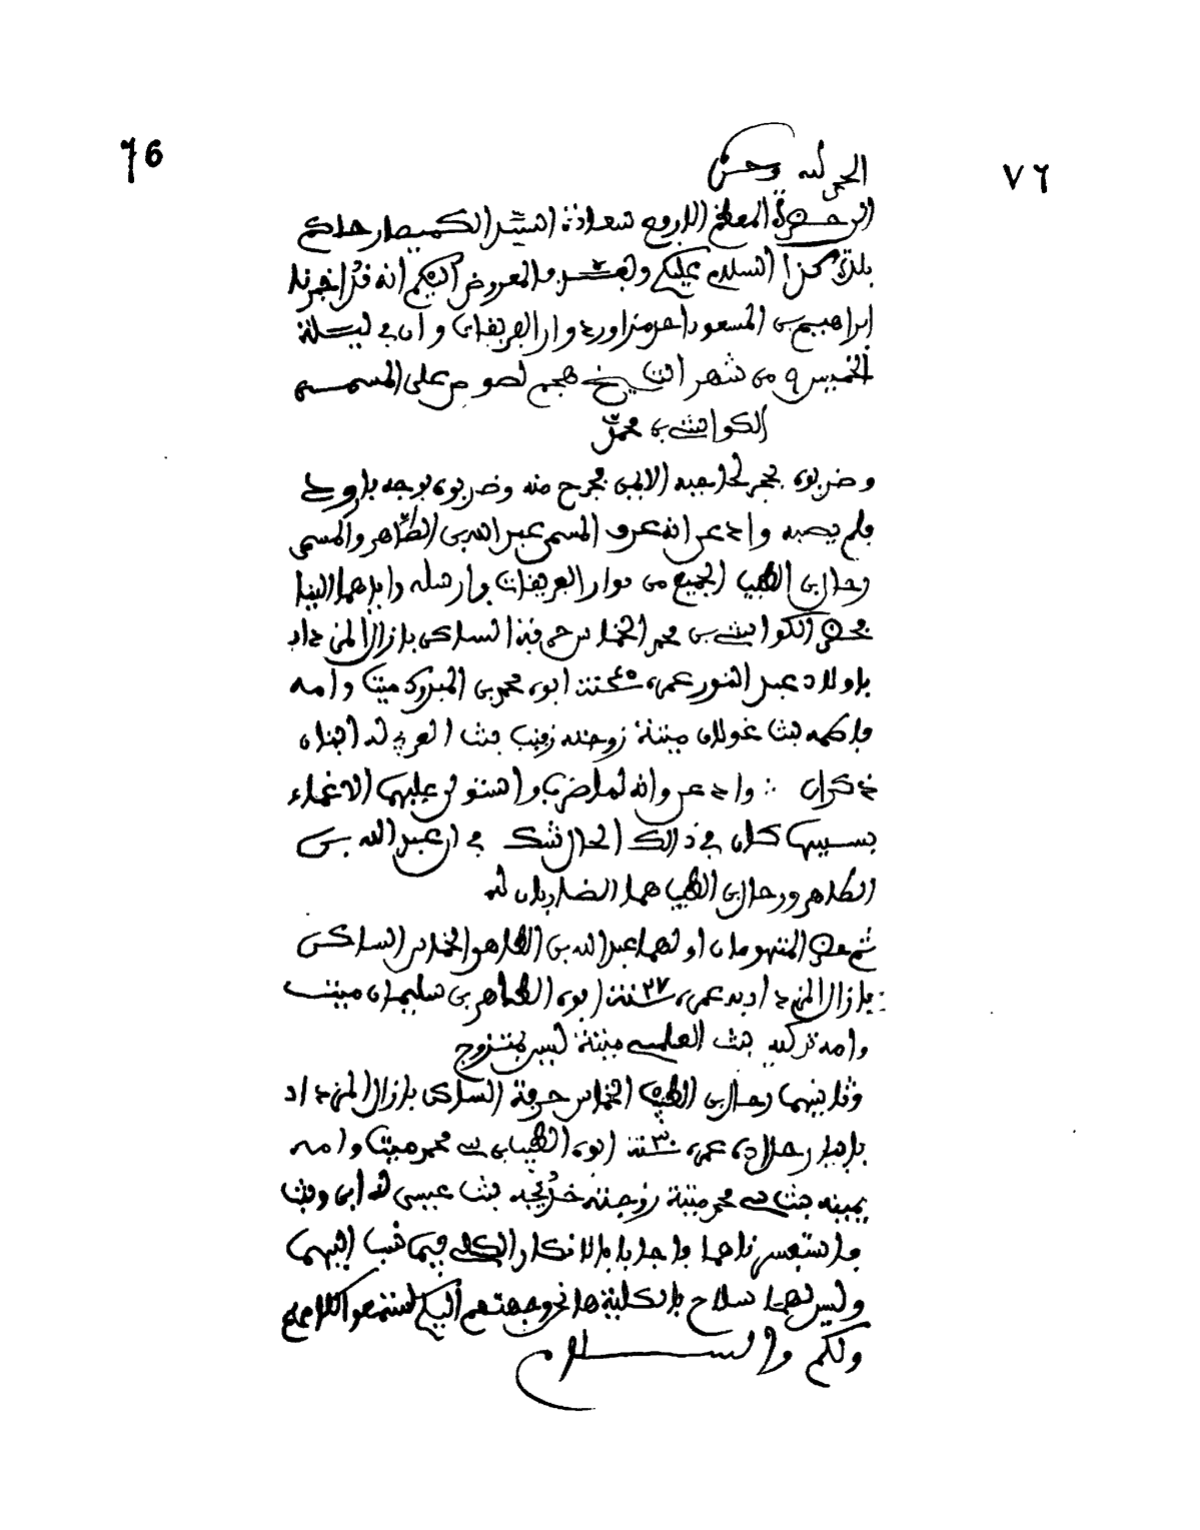 76
٧٦
الحمد لله وحده
الى حضرة المعظم الارفع سعادة السيد الكميصار حاكم
بلدة كذا السلام عليكم وبعد فالمعروض اليكم انه قد اخبرنا
ابراهيم بن المسعود احد مزاورة دوار العريفات وان في ليلة
الخميس ٩ من شهر التاريخ هجم لصوص على المسمى
الكواشي بن محمد
وضربوه بحجر لحاجبه الايمن فجرح منه وضربوه بوجه بارود
فلم يصبه وادعى انه عرف المسمى عبد الله بن الطاهر والمسمى
رحال بن الطيب الجميع من دوار العريفات وارسله واياهما الينا
فحضر الكواشي بن محمد الخماس حرفة الساكن بازال المزداد
باولاد عبد النور عمره ٤٥ سنة ابوه محمد بن المبروك ميت وامه
فاطمة بنت غولان ميتة زوجته زينب بنت العربي له ابنان
ذكران وادعى وانه لما ضرب واستولى عليه الاغماء
بسببها كان في ذالك الحال شك في ان عبد الله بن
الطاهر ورحال بن الطيب هما الضاربان له
ثم حضر المتهومان اولهما عبد الله بن الطاهر الخماس الساكن
بازال المزداد به عمره ٣٧ سنة ابوه الطاهر بن سليمان ميت
وامه تركية بنت العلمي ميتة ليس بمتزوج
وثانيهما رحال بن الطيب الخماس حرفة الساكن بازال المزداد
عمره ٣٠ سنة ابوه الطيب بن سي محمد ميت وامه
يمينة بنت سي محمد ميتة زوجته خديجة بنت عيسى له ابن وبنت
فاستفسرناهما فاجابا بالانكار الكلي فيما نسب اليهما
وليس لهما سلاح بالكلية ها نحن وجهتهم اليكم لتسمعوا كلامهم
ولكم والسلام